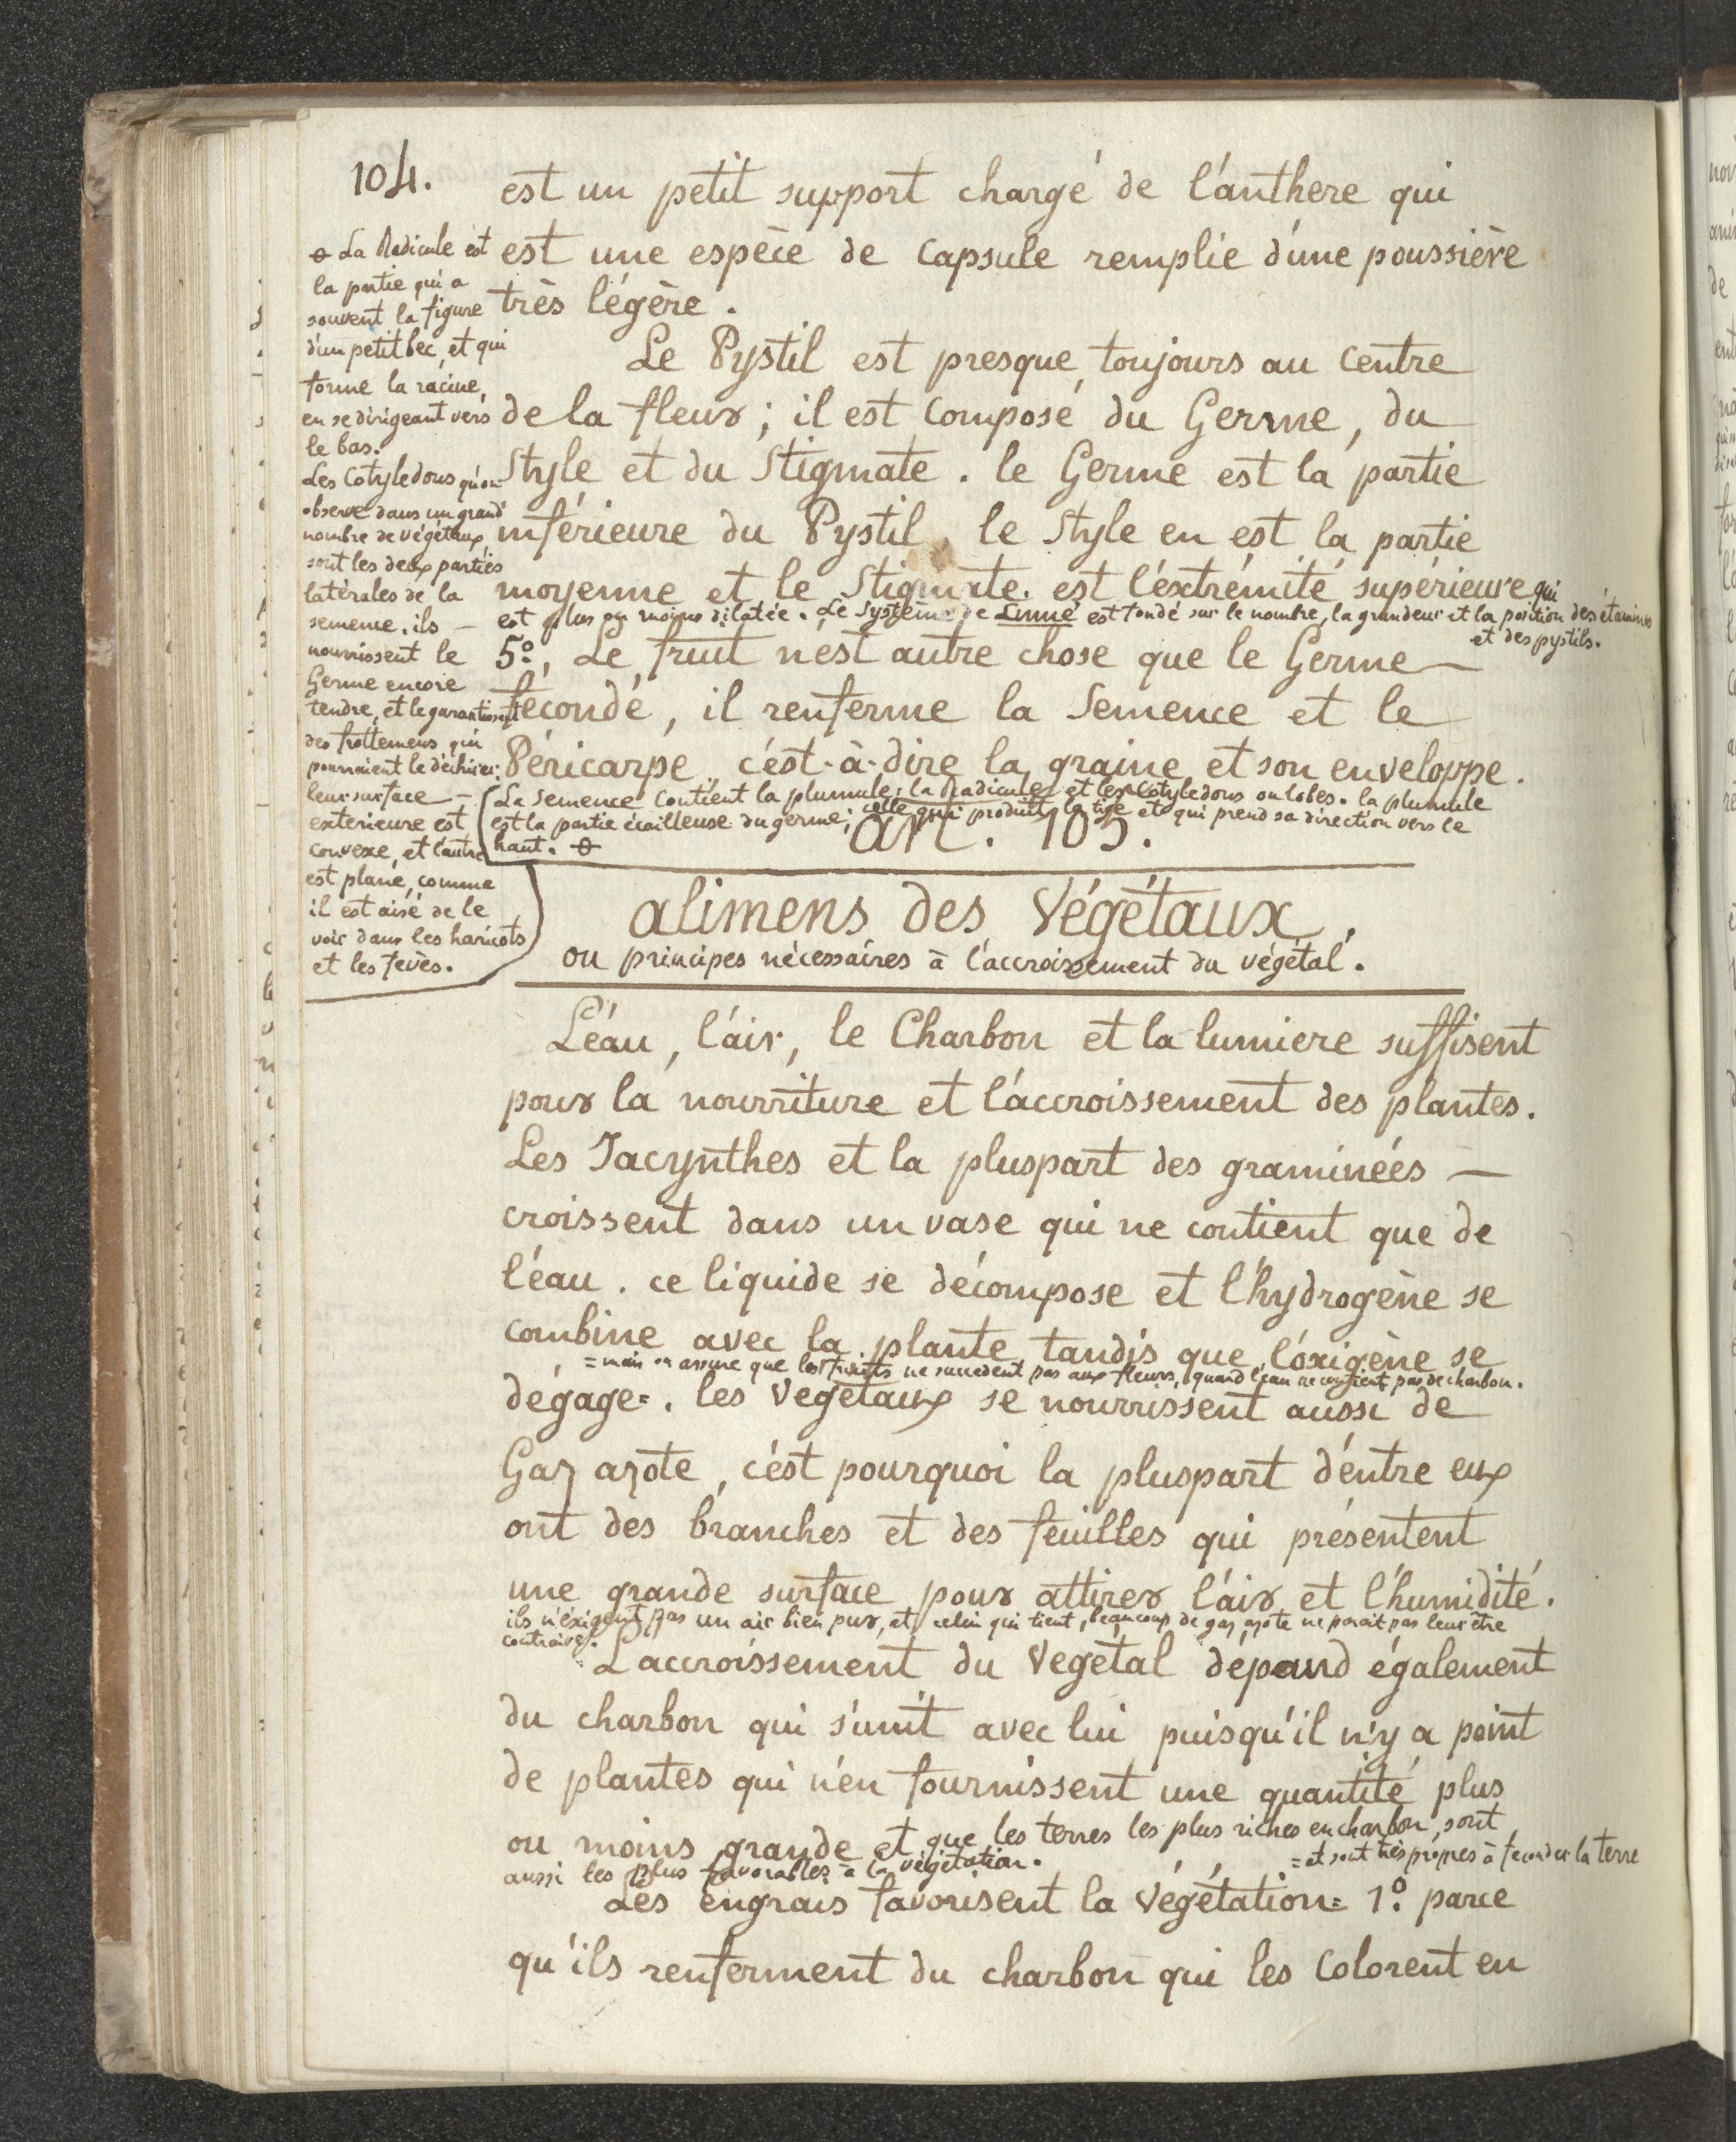 104.
est un petit support chargé de l'anthere qui
est une espèce de Capsule remplie d'une poussière
très légère.
Le Pystil est presque toujours au Centre
de la fleur ; il est Composé du Germe, du
Style et du Stigmate. le Germe est la partie
inférieure du Pystil, le Style en est la partie
moyenne et le Stigmate. est l'éxtrémité supérieure qui
est plus ou moins dilatée. Le Système de Linné est fondé sur le nombre, la grandeur et la position des étamines
et des pystils.
5°, Le fruit n'est autre chose que le Germe —
fécondé, il renferme la Semence et le
Péricarpe, c'ést-à-dire la graine et son enveloppe.
La Semence Contient la plumule, la Radicule et les Cotyledons ou lobes. la plumule
est la partie écailleuse du germe ; celle qui produit la tige et qui prend sa direction vers le
haut. ⊖
art. 105.
⊖ La Radicule est
la partie qui a
souvent la figure
d'un petit bec, et qui
forme la racine,
en se dirigeant vers
le bas.
Les Cotyledons qu'on
observe dans un grand
nombre de végétaux
sont les deux parties
latérales de la
semence. ils —
nourrissent le
Germe encore
tendre, et le garantissent
des frottemens qui
pourroient le déchirer.
leur surface —
exterieure est
convexe, et l'autre
est plane, comme
il est aisé de le
voir dans les haricots
et les feves.
alimens des Végétaux,
ou principes nécessaires à l'accroissement du végétal.
L'éau, l'air, le Charbon et la lumiere suffisent
pour la nourriture et l'accroissement des plantes.
Les Jacynthes et la pluspart des graminéés —
croissent dans un vase qui ne contient que de
l'éau. ce liquide se décompose et l'hydrogène se
combine avec la plante tandis que l'óxigène se
= mais on assure que les fruits ne succedent pas aux fleurs, quand l'éau ne contient pas de charbon.
dégage=. les Végétaux se nourrissent aussi de
Gaz azote, c'ést pourquoi la pluspart d'éntre eux
ont des branches et des feuilles qui présentent
une grande surface pour attirer l'air et l'humidité.
ils n'éxigent pas un air bien pur, et celui qui tient beaucoup de gaz azote ne parait pas leur être
contraire.
L'accroissement du Végétal dépand également
du charbon qui s'unit avec lui puisqu'il n'y a point
de plantes qui n'en fournissent une quantité plus
ou moins grande et que les terres les plus riches en charbon, sont
aussi les plus favorables à la végétation.
= et sont très propres à feconder la terre
Les engrais favorisent la Végétation= 1° parce
qu'ils renferment du charbon qui les Colorent en